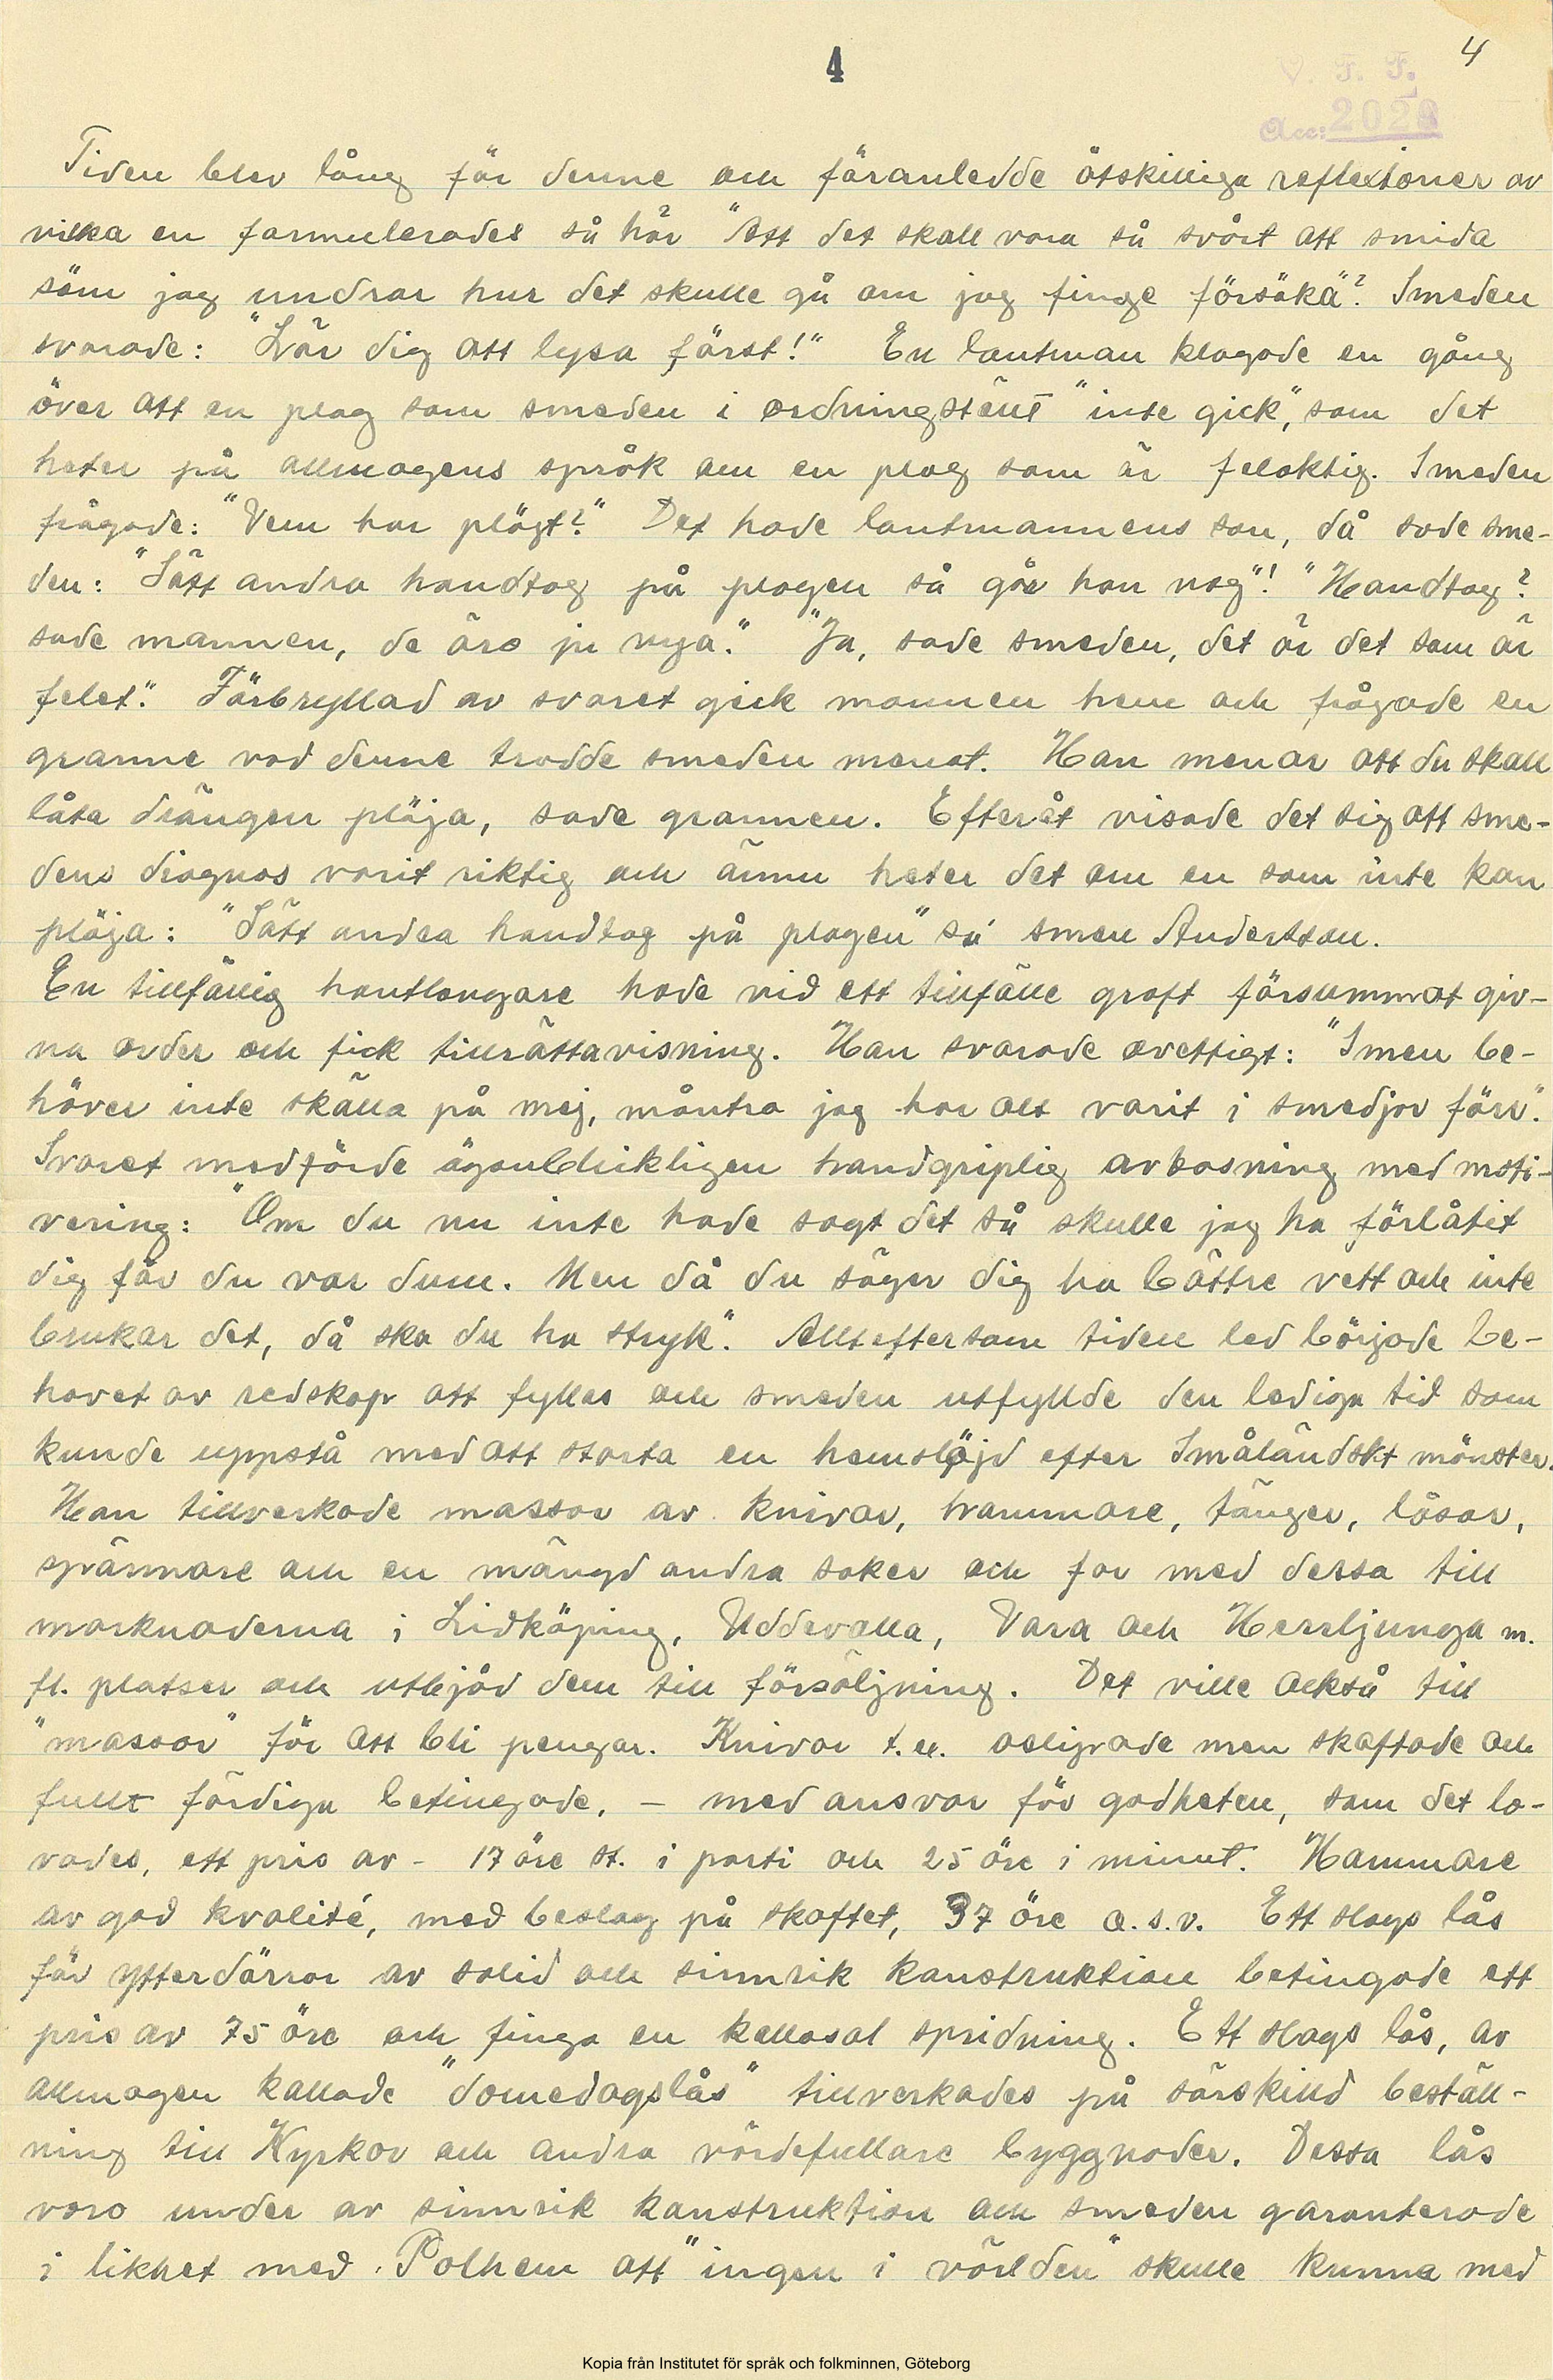 4
4
V. F. F.
Acc: 2029
Tiden blev lång för denne och föranledde åtskilliga reflextioner av
vilka en formulerades så här "Att det skall vara så svårt att smida
söm jag undrar hur det skulle gå om jag finge försöka"? Smeden
svarade: "Lär dig att lysa först!" En lantman klagade en gång
över att en plog som smeden i ordningstält "inte gick", som det
heter på allmogens språk om en plog som är felaktig. Smeden
frågade: "Vem har plögt?" Det hade lantmannens son, då sade sme-
den: "Sätt andra handtag på plogen så går han nog"! "Handtag?
sade mannen, de äro ju nya." "Ja, sade smeden, det är det som är
felet". Förbryllad av svaret gick mannen hem och frågade en
granne vad denne trodde smeden menat. "Han menar att du skall
låta drängen plöja, sade grannen. Efteråt visade det sig att sme-
dens diagnos varit riktig och ännu heter det om en som inte kan
plöja: "Sätt andra handtag på plogen" sa' smen Andersson.
En tillfällig hantlangare hade vid ett tillfälle groft försummat giv-
na order och fick tillrättavisning. Han svarade ovettigt: "Smen be-
höver inte skälla på mej, måntro jag har allt varit i smedjor förr".
Svaret medförde ögonblickligen handgriplig avbasning med moti-
vering: "Om du nu inte hade sagt det så skulle jag ha förlåtit
dig för du var dum. Men då du säger dig ha bättre vett och inte
brukar det, då ska du ha stryk". Allteftersom tiden led började be-
hovet av redskap att fyllas och smeden utfyllde den lediga tid som
kunde uppstå med att starta en hemslöjd efter Småländskt mönster.
Han tillverkade massor av knivar, hammare, tänger, låsar,
spännare och en mängd andra saker och for med dessa till
marknaderna i Lidköping, Uddevalla, Vara och Herrljunga m.
fl. platser och utbjöd dem till försäljning. Det ville också till
"massor" för att bli pengar. Knivar t.ex. oslipade men skaftade och
fullt färdiga betingade, - med ansvar för godheten, som det lo-
vades, ett pris av - 17 öre st. i parti och 25 öre i minut. Hammare
av god kvalité, med beslag på skaftet, 37 öre o.s.v. Ett slags lås
för ytterdörrar av solid och sinnrik konstruktion betingade ett
pris av 75 öre och finga en kollosal spridning. Ett slags lås, av
allmogen kallade "domedagslås" tillverkades på särskild beställ-
ning till Kyrkor och andra värdefullare byggnader. Dessa lås
voro under av sinnrik konstruktion och smeden garanterade
i likhet med Polhem att "ingen i världen" skulle kunna med
Kopia från Institutet för språk och folkminnen, Göteborg